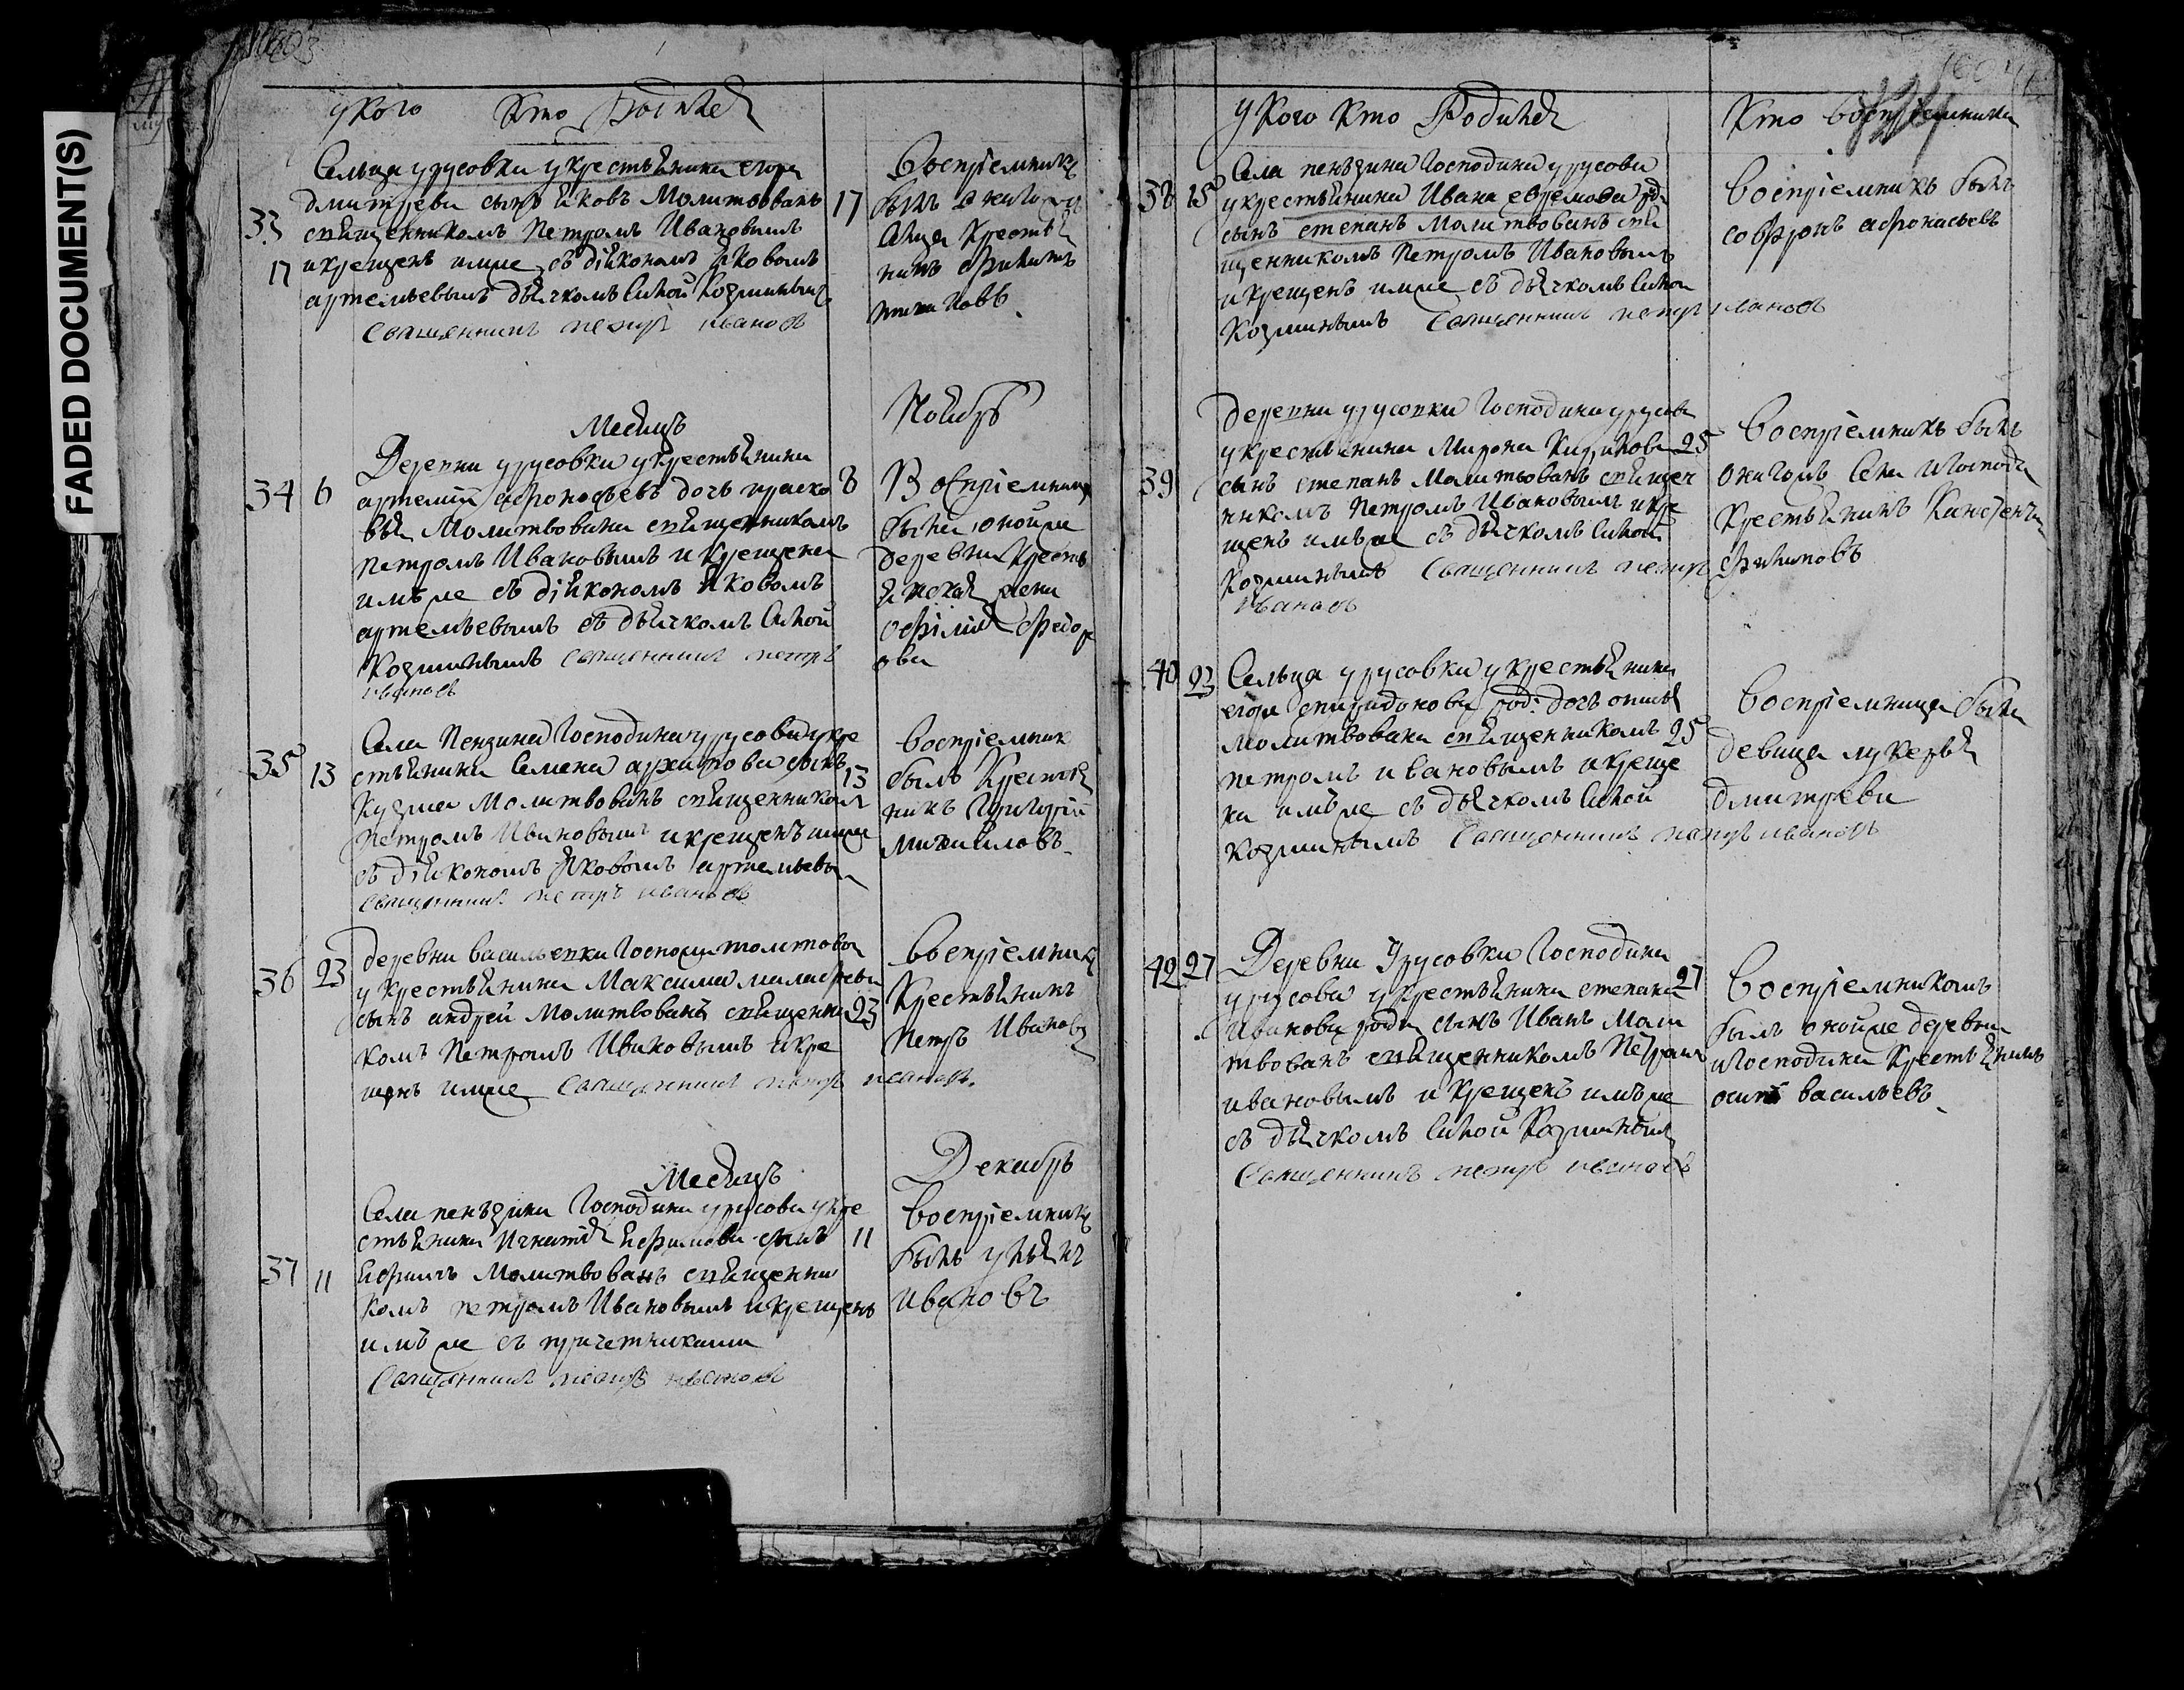 FADED DOCUMENT(S)
1603
у кого Кто Родился
Сельца урусовки у крестьянина егора
дмитрева сынъ яковъ Молитвованъ
33
17
священникомъ Петромъ Ивановымъ
17
и крещенъ имже съ дiякономъ яковомъ
артемьевымъ дьячкомъ Силой Козминымъ
Священникъ петръ ивановъ
Воспрiемникъ
былъ
сельца крестья
нинъ филипъ
Месяцъ Ноябрь
Деревни урусовки у крестьянина
34 6 артемiя афонасьевъ дочь праско 8
вья Молитвована священникомъ
Петромъ Ивановымъ и крещена
имъже съ дiякономъ яковомъ
артемьевымъ съ дьячкомъ Силой
Козминымъ священникъ петръ
ивановъ
Воспрiемница
была оной же
деревни кресть
янская жена
офiмiя федор
ова
Села Пензина Господина урусова у кре
35 13 стьянина Семена архипова сынъ 13
Кузма Молитвованъ священникомъ
Петромъ Ивановымъ и крещенъ имже
съ дiякономъ яковомъ артемьевы
священникъ петръ ивановъ
воспрiемник
былъ крестья
нинъ Григорiй
михаиловъ
деревни васильевки Господи толстова
36 23 у крестьянина Максима
сынъ андрей Молитвованъ священни 23
комъ Петромъ Ивановымъ и кре
щенъ имже Священникъ петръ ивановъ.
воспрiемникъ
Крестьянинъ
Петръ Ивановъ
Месяцъ Декабрь
Села пензина Господина урусова у кре
стьянина Игнатiя Ефимова сынъ 11
37 11 Ефимъ Молитвованъ священни
комъ петромъ Ивановымъ и крещенъ
имъже съ причетниками
Священникъ петръ ивановъ
Воспрiемникъ
былъ ульянъ
ивановъ
1604
У кого Кто Родился Кто воспрiемники
Села пензина Господина урусова
38 15 у крестьянина Ивана ефремова род:
сынъ степанъ Молитвованъ свя
щенникомъ Петромъ Ивановымъ
и крещенъ имже съ дьячкомъ Силой
Козминымъ Священникъ петръ ивановъ
Воспрiемникъ былъ
софронъ афонасьевъ
деревни урусовки Господина урусова
у крестьянина Мирона Кирилова 25
39 сынъ степанъ Молитвованъ священ
никомъ Петромъ Ивановымъ и кре
щенъ имъже съ дьячкомъ Силой
Козминымъ Священникъ петръ
ивановъ
Воспрiемникъ былъ
оногожъ села и Господи
крестьянинъ
филиповъ
40 23 Сельца урусовки у крестьянина
егора спиридонова род: дочь
Молитвована священникомъ 25
петромъ ивановымъ и креще
на имъже съ дьячкомъ Силой
козминымъ Священникъ петръ ивановъ
Воспрiемница была
девица лукерья
дмитрева
42 27 Деревни Урусовки Господина
урусова у крестьянина степана 27
Иванова роди сынъ Иванъ Моли
твованъ священникомъ Петромъ
ивановымъ и крещенъ имъже
съ дьячкомъ Силой Козминымъ
Священникъ петръ ивановъ
Воспрiемникомъ
былъ оной же деревни
и Господина Крестьянинъ
осипъ васильевъ